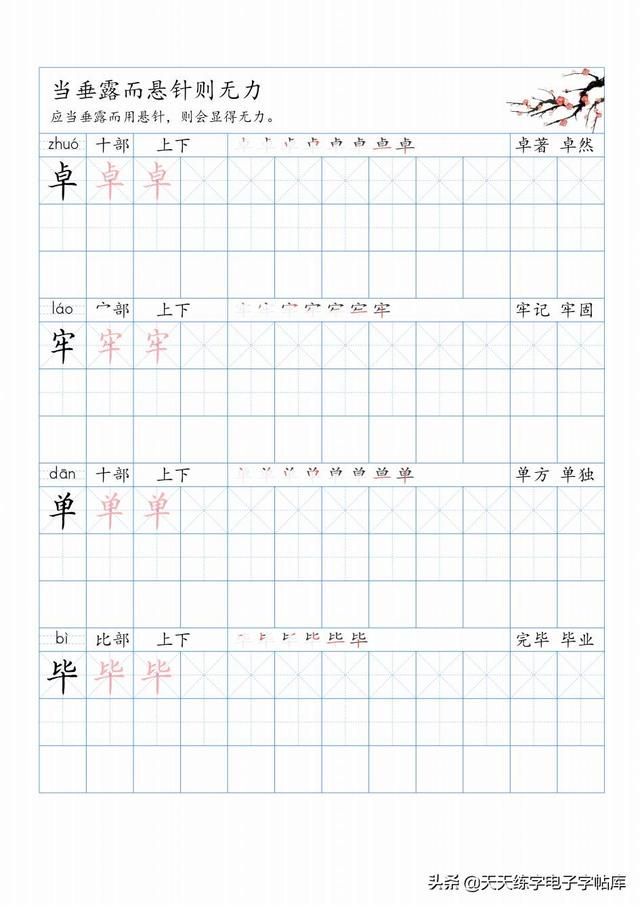 当垂露而悬针则无力
应当垂露而用悬针，则会显得无力。
zhuó 十部 上下 卓著 卓然
卓 卓 卓
láo 宀部 上下 牢记 牢固
牢 牢 牢
dān 十部 上下 单方 单独
单 单 单
bì 比部 上下 完毕 毕业
毕 毕 毕
头条 @天天练字电子字帖库